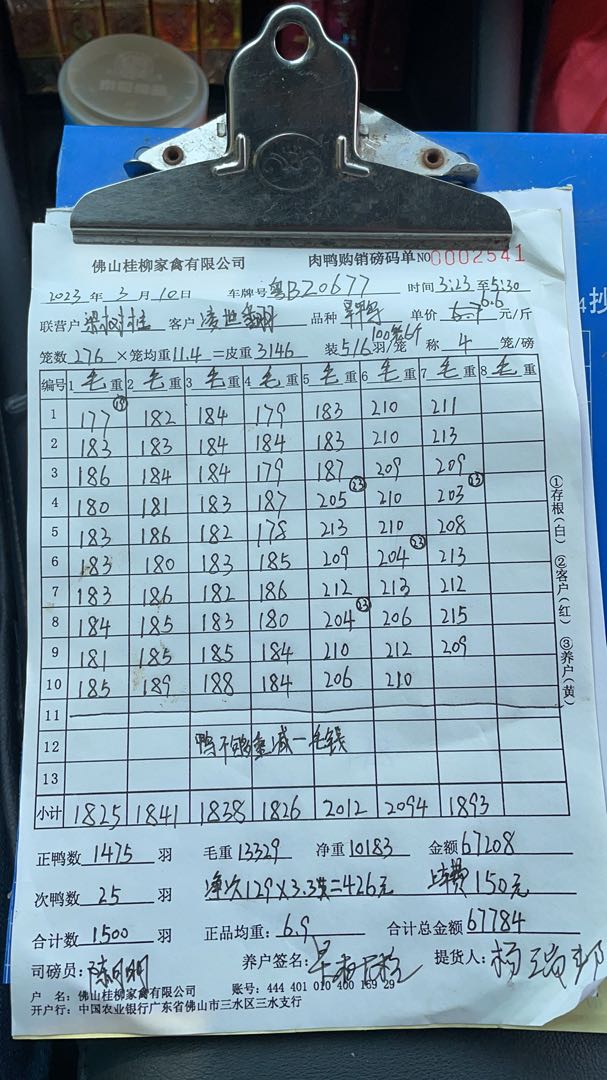 佛山桂柳家禽有限公司 肉鸭购销磅码单 NO 0002541
2023 年 3 月 10 日 车牌号 粤B20677 时间 3:23 至 5:30
联营户 梁树桂 客户 凌世 品种 单价 6.7 6.6 元/斤
笼数 276 ×笼均重 11.4 =皮重 3146 装 5/6 羽/笼 称 4 笼/磅
编号 1 毛 重 2 毛 重 3 毛 重 4 毛 重 5 毛 重 6 毛 重 7 毛 重 8 毛 重
1 177 182 184 179 183 210 211
2 183 183 184 184 183 210 213
3 186 184 184 179 187 209 209
4 180 181 183 187 205 ㉓ 210 203 ㉓
5 183 186 182 178 213 210 208
6 183 180 183 185 209 204 ㉓ 213
7 183 186 182 186 212 213 212
8 184 185 183 180 204 ㉓ 206 215
9 181 185 185 184 210 212 209
10 185 189 188 184 206 210
11
12 鸭不够重减一毛钱
13
小计 1825 1841 1838 1826 2012 2094 1893
正鸭数 1475 羽 毛重 13329 净重 10183 金额 67208
次鸭数 25 羽 净次129×3.3=426元 150元
合计数 1500 羽 正品均重: 6.9 合计总金额 67784
司磅员: 养户签名: 提货人:
户 名: 佛山桂柳家禽有限公司 账号: 444 401 010 400 169 29
开户行: 中国农业银行广东省佛山市三水区三水支行
①存根(白) ②客户(红) ③养户(黄)